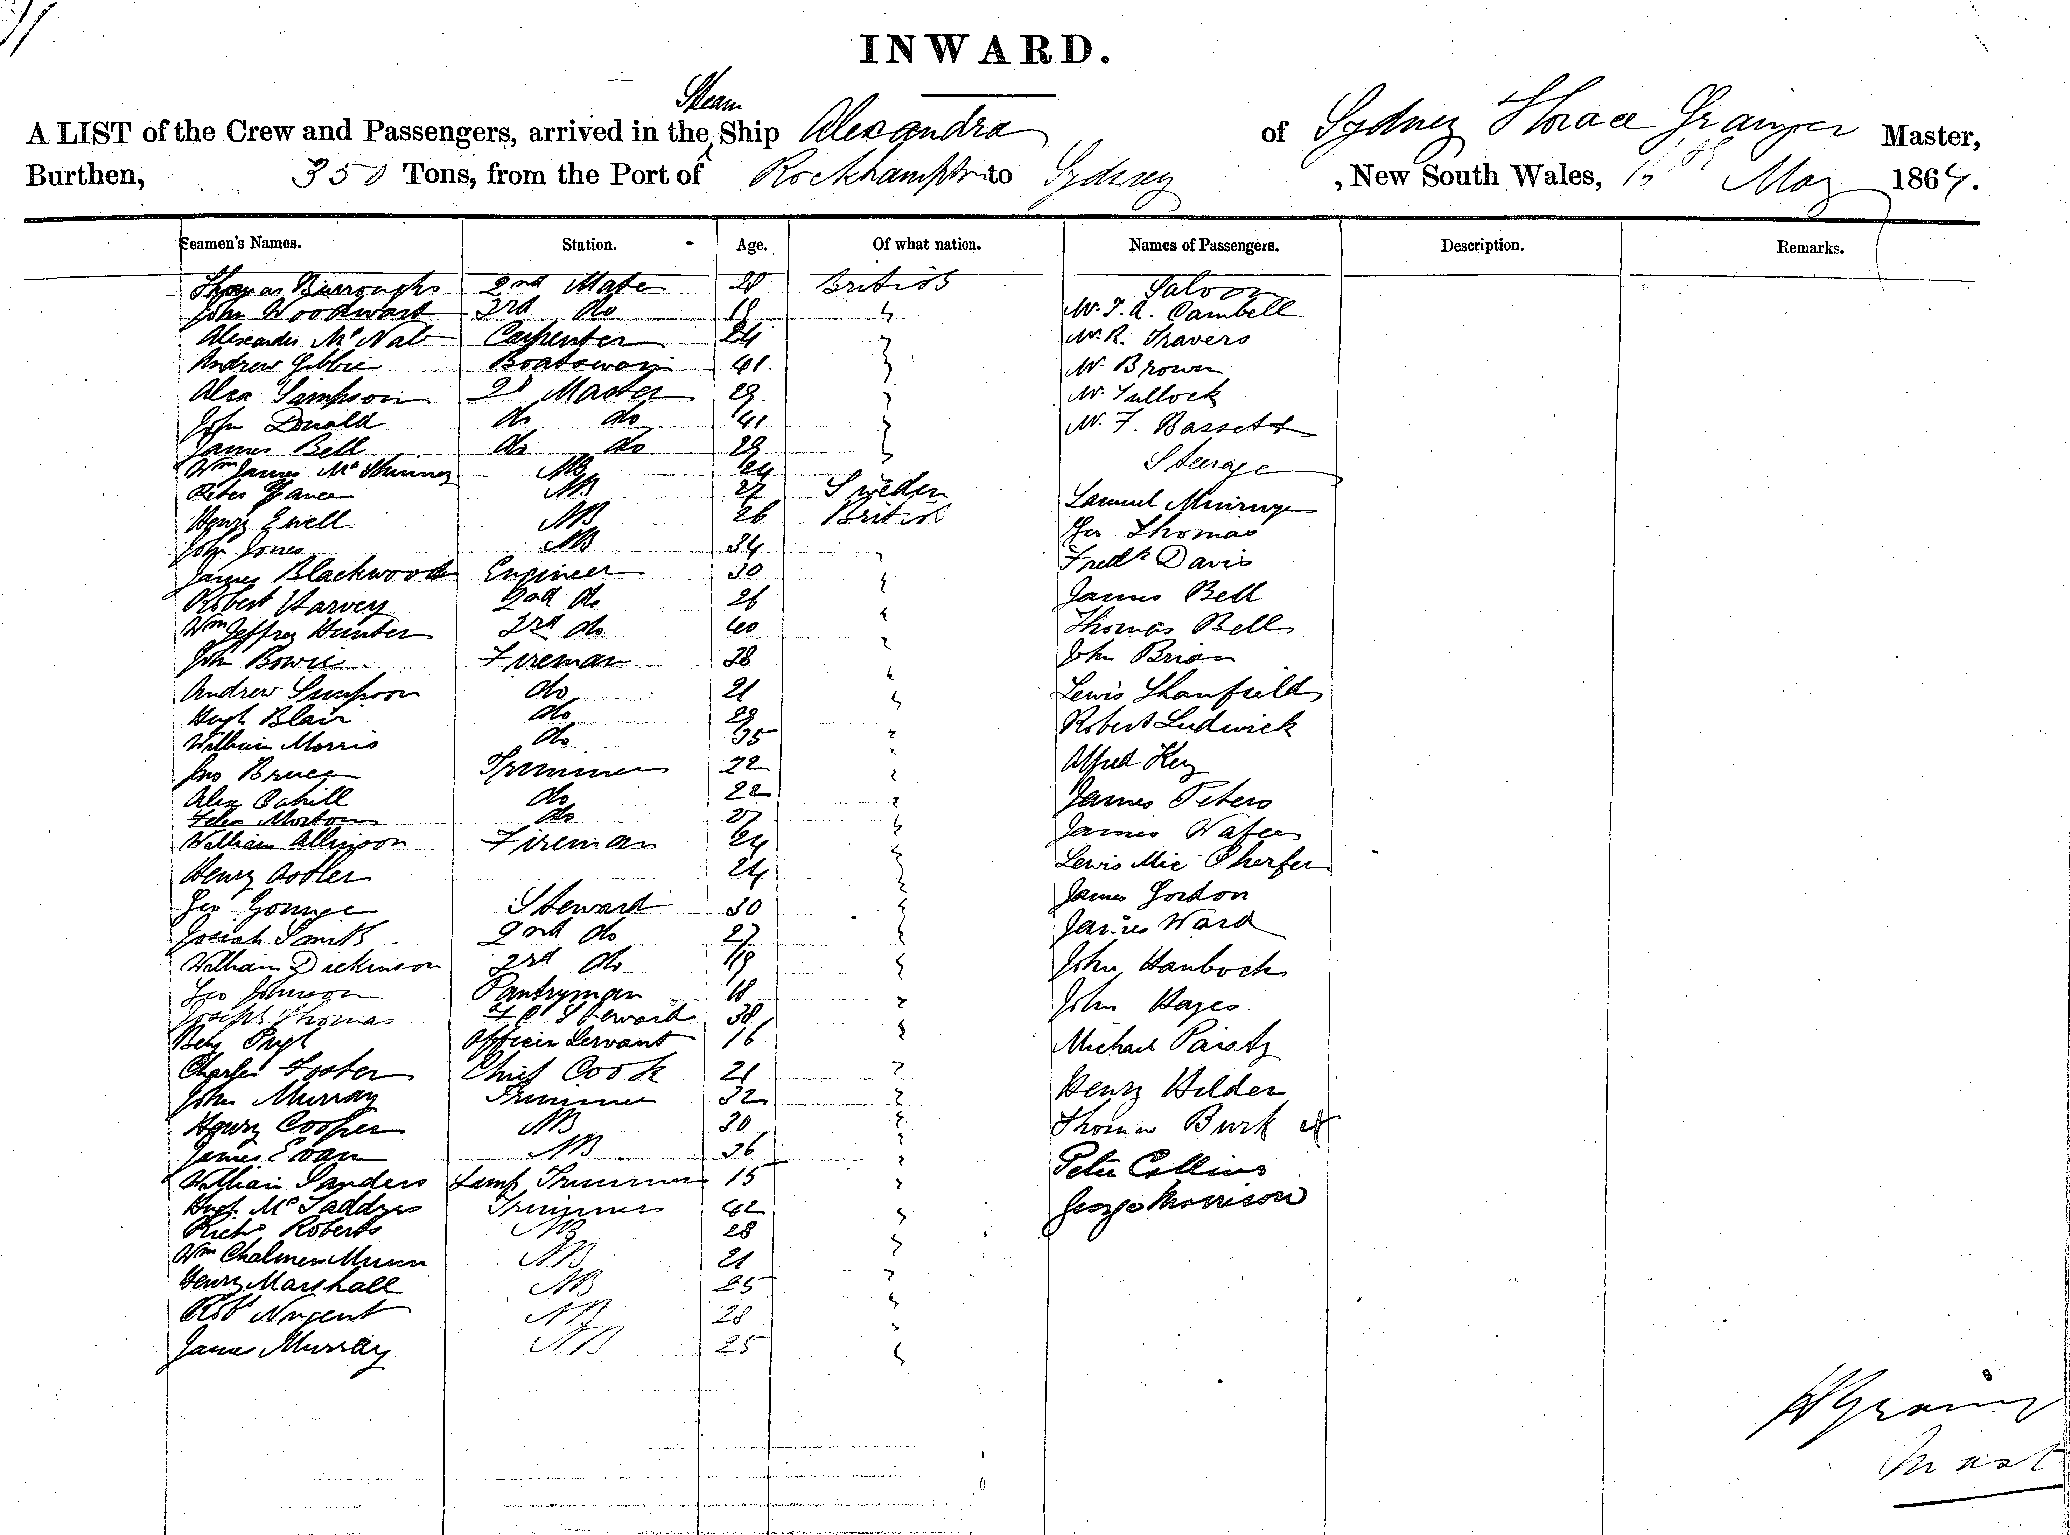 INWARD.
Steam
A LIST of the Crew and Passengers, arrived in the Ship Alexandra of Sydney Horace Grainger Master,
Burthen, 350 Tons, from the Port of Rockhampton to Sydney , New South Wales, May 1864.
Seamen's Names. Station. Age. Of what nation. Names of Passengers. Description. Remarks.
Thomas Burroughs 2nd Mate 28 British Saloon
John Woodward 3rd do 19 " Mr. J. A. Cambell
Alexander McNab Carpenter 24 " Mr. R. Travers
Andrew Gibbie Boatswain 41 Mr Brown
Alex Simpson 2d Master 29 " Mr Tullock
John Donald do do 41 Mr. F. Bassett
James Bell do do 29 " Steerage
Wm James AB 24
Peter AB 27 Sweden Samuel
Henry Ewell AB 26 British Geo Thomas
John Jones AB 34 " Fredk Davis
James Blackwood Engineer 30 " James Bell
Robert Harvey 2nd do 26 " Thomas Bell
Wm Jeffrey Hunter 3rd do 40 " John Brian
John Bowie Fireman 38 " Lewis
Andrew Simpson do 21 " Robert Ludwick
Hugh Blair do 29 Alfred Key
William Morris do 35 " James Peters
Jno Bruce Trimmer 22 " James
Alex Cahill do 22 " Lewis
Felix Morton do 27 " James Gordon
William Allinson Fireman 24 " James Ward
Henry 24 " John
Geo Steward 30 " John Hayes
Josiah Smith 2nd do 27 " Michael
William Dickinson 3rd do 19 " Henry Hilder
Geo Johnson Pantryman 18 " Thomas Burk
Joseph Thomas Steward 38 Peter Collins
Officer Servant 16 " George Morrison
Charles Foster Chief Cook 21 "
John Murray Trimmer 32 "
Henry Cooper AB 30 "
James Evan AB 36 "
William Sanders Lamp Trimmer 15 "
Trimmer 42 "
Richd Roberts AB 28
Wm Chalmers Munn AB 21 "
Henry Marshall AB 25 "
Robt Nugent AB 28 "
James Murray AB 25 "